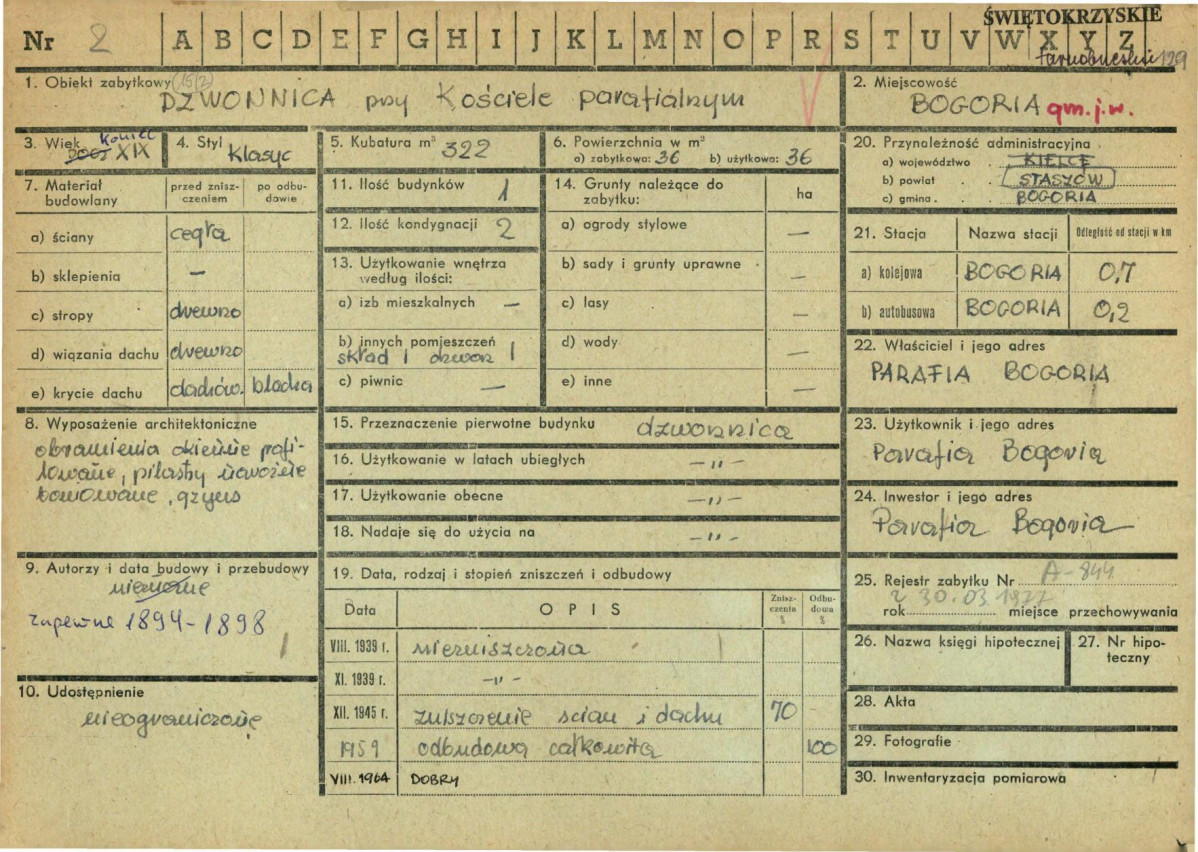 ŚWIĘTOKRZYSKIE
Nr 2 A B C D E F G H I J K L M N O P R S T U V W X Y Z
tarnobrzeskie 129
1. Obiekt zabytkowy (15/2)
DZWONNICA przy Kościele parafialnym
2. Miejscowość
BOGORIA gm. j.w.
3. Wiek koniec
XIX
4. Styl klasyc
5. Kubatura m³ 322
6. Powierzchnia w m²
a) zabytkowa: 36 b) użytkowa: 36
20. Przynależność administracyjna
a) województwo . KIELCE
b) powiat . . STASZÓW
c) gmina . . BOGORIA
7. Materiał budowlany
przed znisz-
czeniem
po odbu-
dowie
a) ściany cegła
b) sklepienia –
c) stropy drewno
d) wiązania dachu drewno
e) krycie dachu dachów. blacha
11. Ilość budynków 1
12. Ilość kondygnacji 2
13. Użytkowanie wnętrza
według ilości:
a) izb mieszkalnych –
b) innych pomieszczeń
skład 1 dzwon 1
c) piwnic –
14. Grunty należące do
zabytku:
ha
a) ogrody stylowe –
b) sady i grunty uprawne –
c) lasy –
d) wody –
e) inne –
21. Stacja Nazwa stacji Odległość od stacji w km
a) kolejowa BOGORIA 0,7
b) autobusowa BOGORIA 0,2
22. Właściciel i jego adres
PARAFIA BOGORIA
8. Wyposażenie architektoniczne
obramienia okienne profi-
lowane, pilastry narożne
boniowane, gzyms
15. Przeznaczenie pierwotne budynku dzwonnica
16. Użytkowanie w latach ubiegłych –"–
17. Użytkowanie obecne –"–
18. Nadaje się do użycia na –"–
23. Użytkownik i jego adres
Parafia Bogoria
24. Inwestor i jego adres
Parafia Bogoria
9. Autorzy i data budowy i przebudowy
nieznane
zapewne 1894-1898
10. Udostępnienie
nieograniczone
19. Data, rodzaj i stopień zniszczeń i odbudowy
Data OPIS Znisz-
czenia
% Odbu-
dowa
%
VIII. 1939 r. niezniszczona
XI. 1939 r. –"–
XII. 1945 r. zniszczenie ścian i dachu 70 –
1959 odbudowa całkowita 100
VIII. 1964 DOBRY
25. Rejestr zabytku Nr A-844
z 30.03.1977
rok miejsce przechowywania
26. Nazwa księgi hipotecznej
27. Nr hipo-
teczny
28. Akta
29. Fotografie
30. Inwentaryzacja pomiarowa